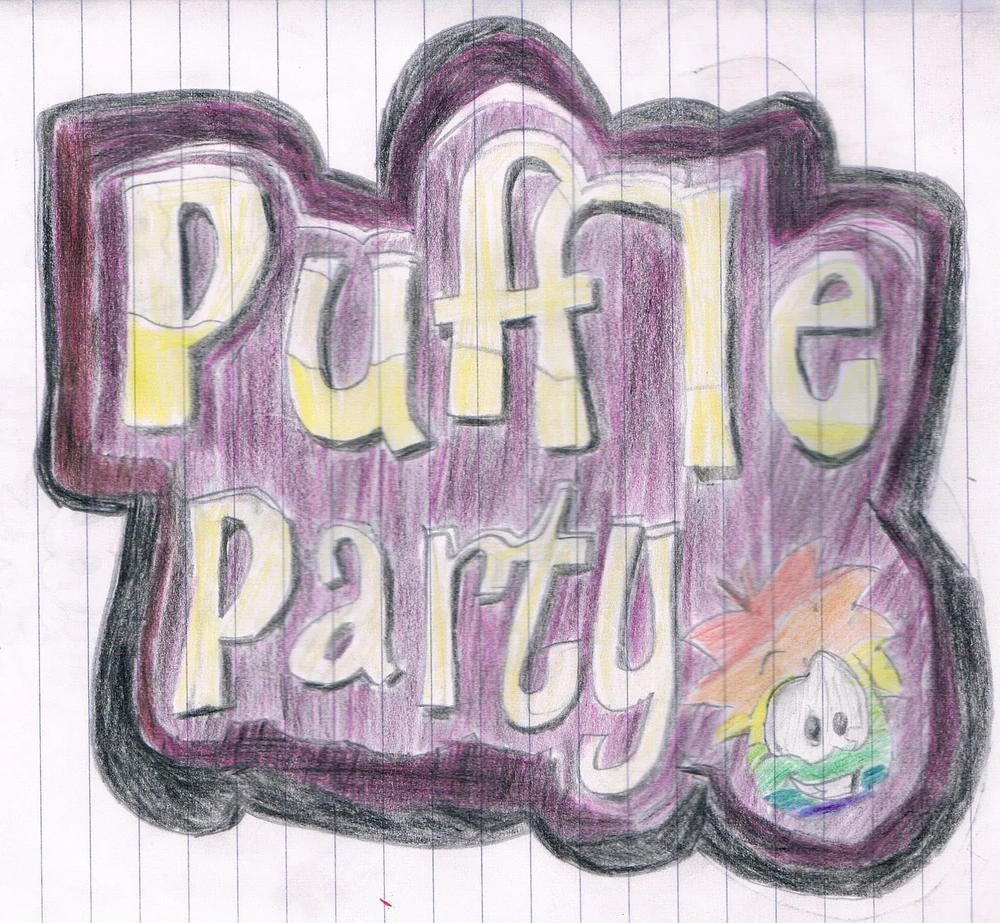 Puffle
Party